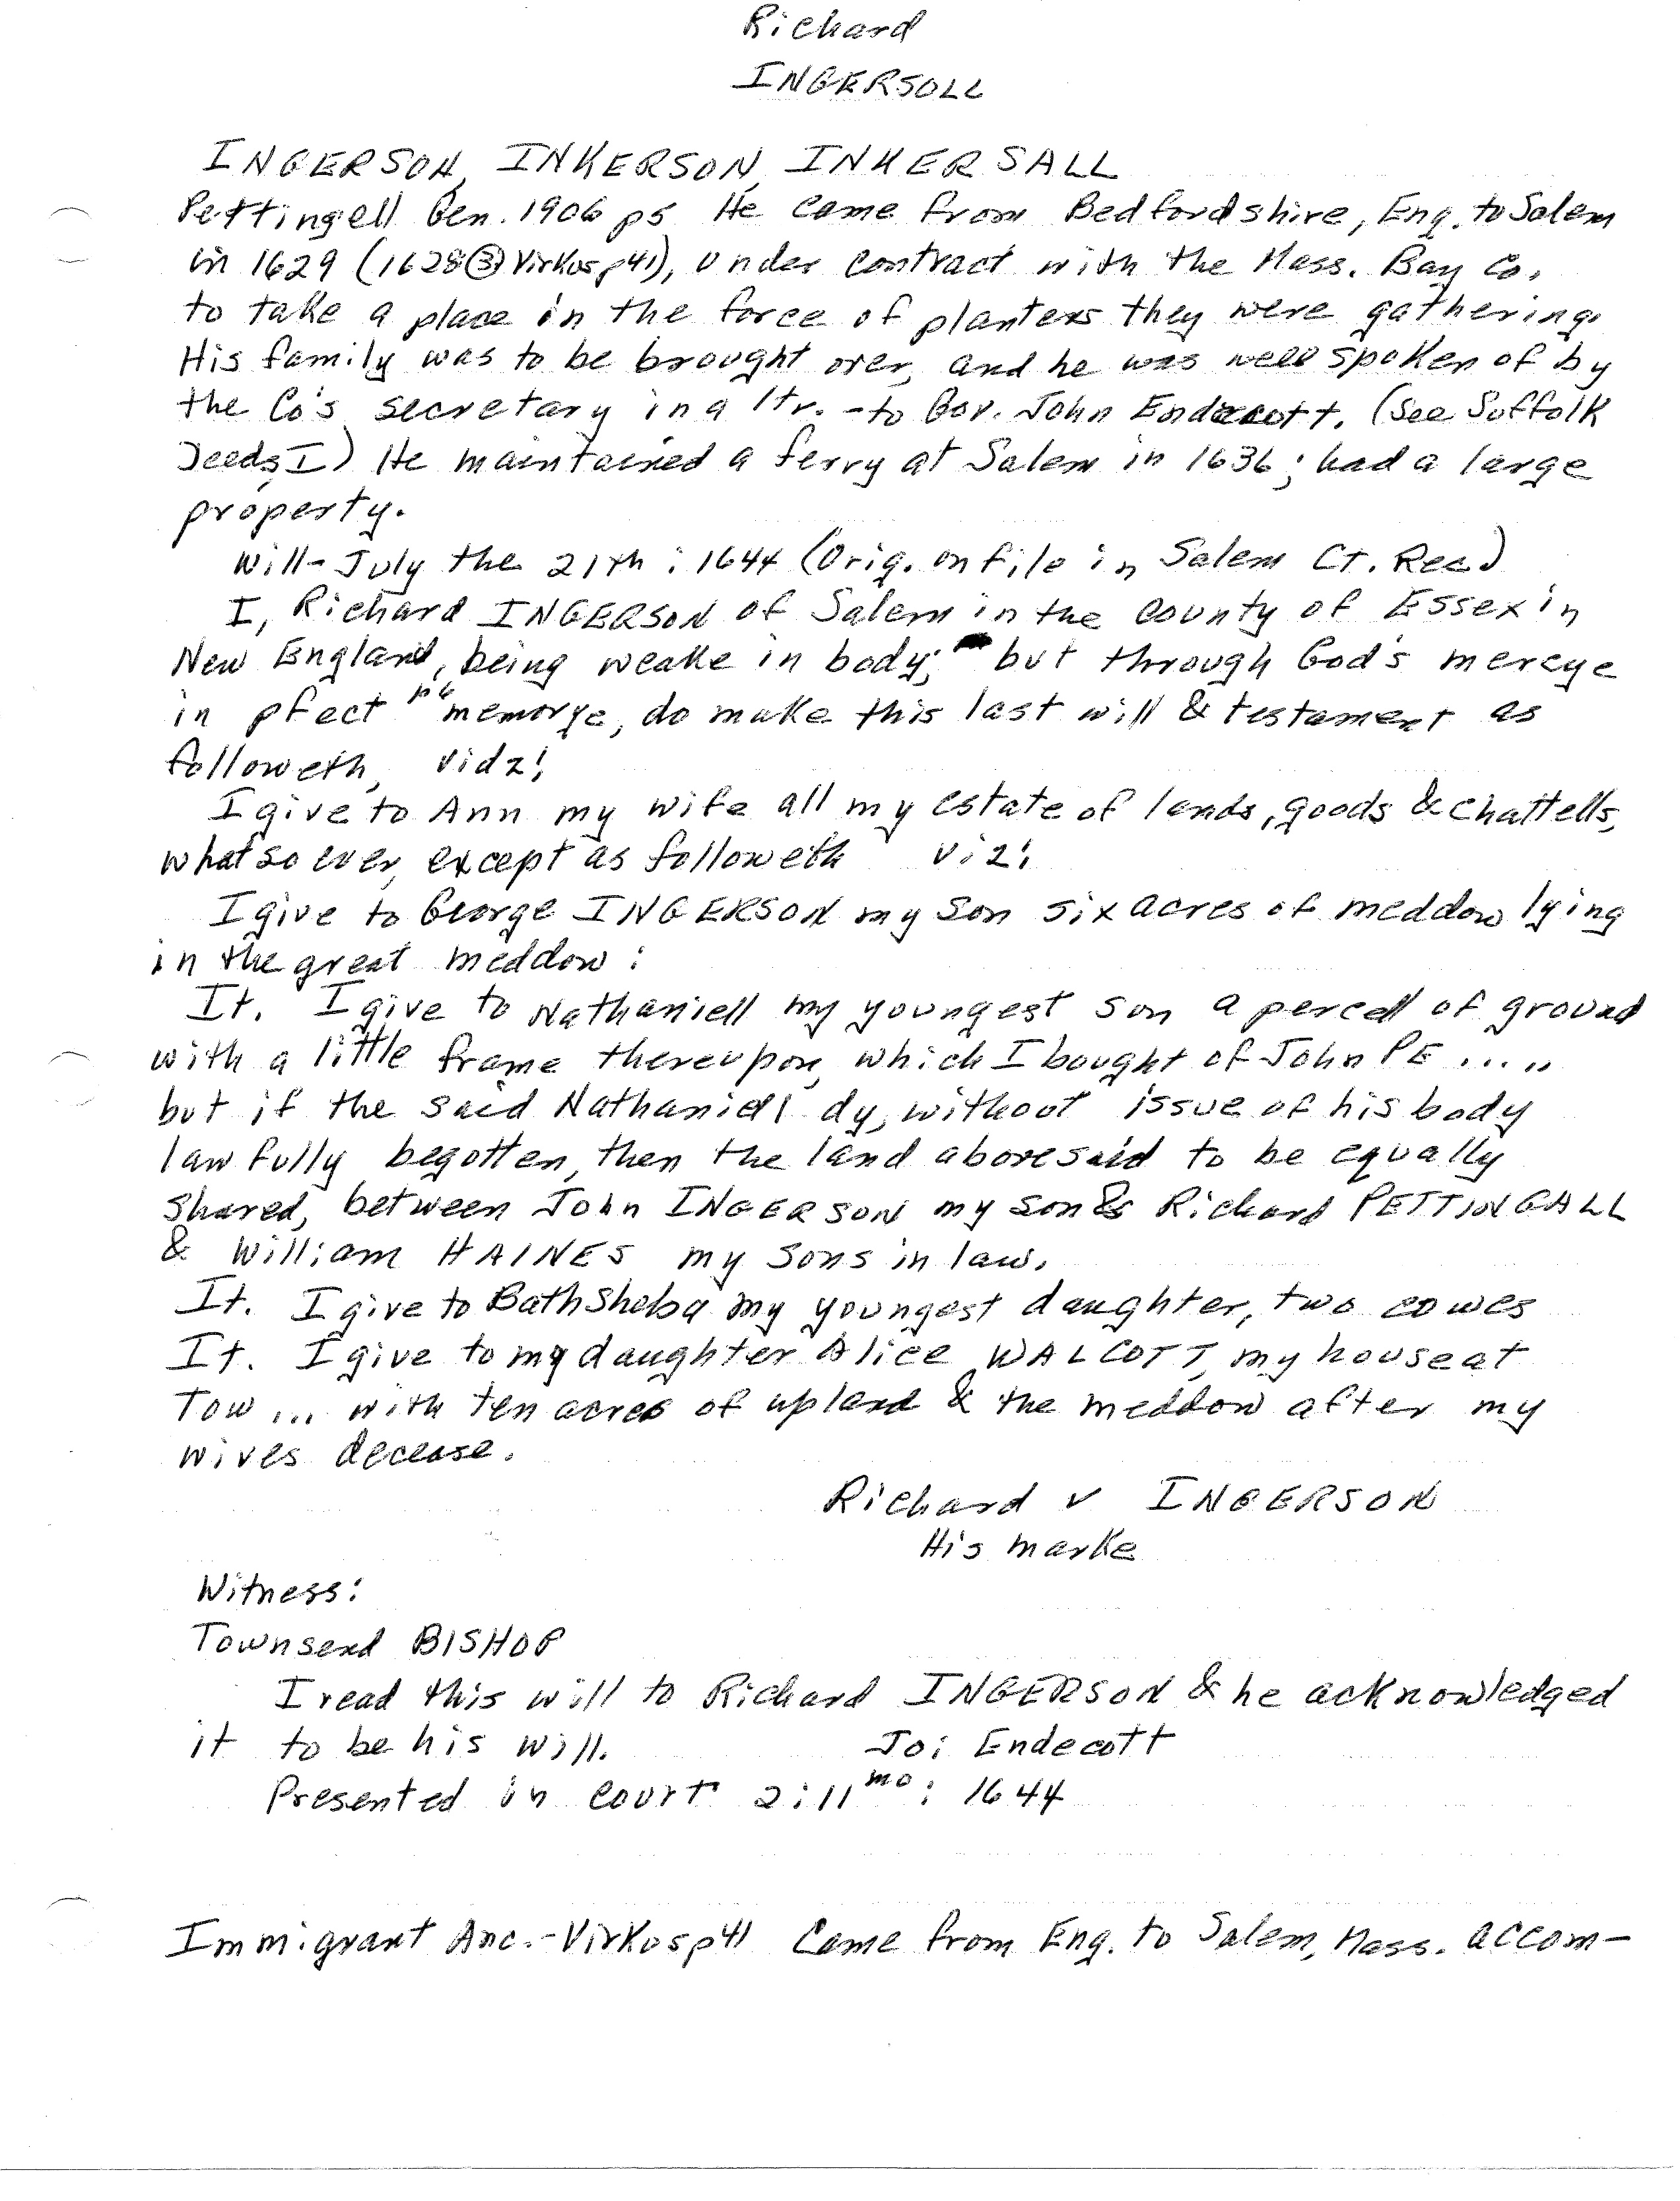 Richard
INGERSOLL
INGERSON, INKERSON, INKERSALL
Pettingell Gen. 1906 p5 He came from Bedfordshire, Eng. to Salem
in 1629 (1628 ③ Virkus p41), under contract with the Mass. Bay Co.
to take a place in the force of planters they were gathering.
His family was to be brought over, and he was well spoken of by
the Co's secretary in a ltr. - to Gov. John Endecott. (See Suffolk
Deeds, I) He maintained a ferry at Salem in 1636; had a large
property.
Will - July the 21th : 1644 (Orig. on file in Salem Ct. Rec.)
I, Richard INGERSON of Salem in the county of Essex in
New England, being weake in body; but through God's mercye
in pfect p6 memorye, do make this last will & testament as
followeth, vidz!
I give to Ann my wife all my estate of lands, goods & chattells,
whatsoever, except as followeth viz:
I give to George INGERSON my son six acres of meddow lying
in the great meddow :
It. I give to Nathaniell my youngest son a percell of ground
with a little frame thereupon, which I bought of John PE .....
but if the said Nathaniell dy, without issue of his body
lawfully begotten, then the land abovesaid to be equally
shared, between John INGERSON my son & Richard PETTINGALL
& William HAINES my sons in law.
It. I give to Bathsheba my youngest daughter, two cowes
It. I give to my daughter Alice WALCOTT, my house at
Tow ... with ten acres of upland & the meddow after my
wives decease.
Richard v INGERSON
His marke
Witness:
Townsend BISHOP
I read this will to Richard INGERSON & he acknowledged
it to be his will. Jo: Endecott
Presented in court 2:11 mo : 1644
Immigrant Anc. - Virkus p41 Came from Eng. to Salem, Mass. accom-